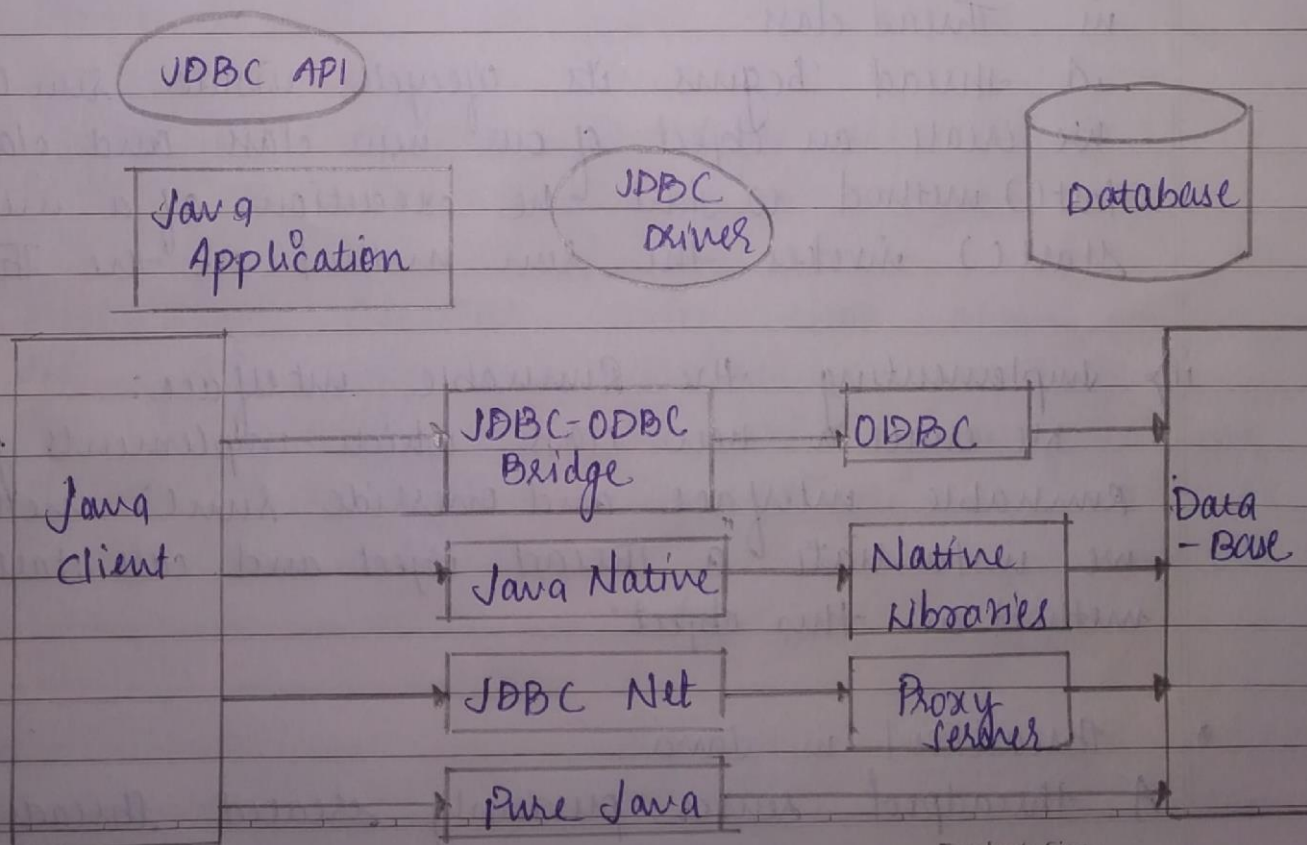 JDBC API
Java
Application
JDBC
Driver
Database
Java
Client
JDBC-ODBC
Bridge
ODBC
Java Native
Native
Libraries
JDBC Net
Proxy
Server
Pure Java
Data
- Base